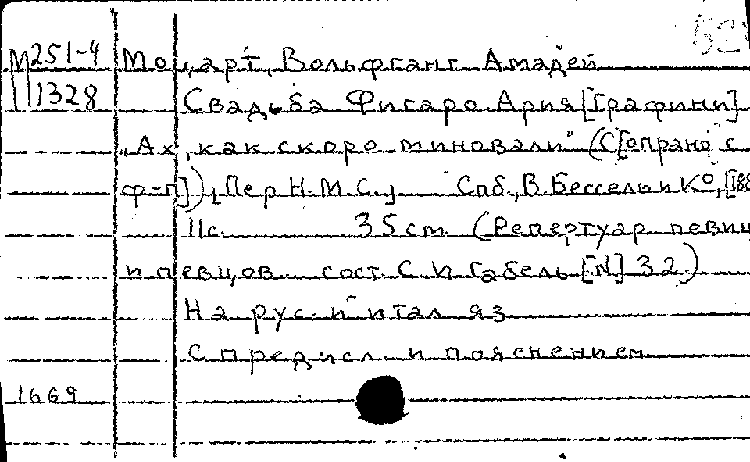 М251-4 Моцарт, Вольфганг Амадей
1328 Свадьба Фигаро. Ария [Графини]
"Ах, как скоро миновали" (С[опрано с
ф-п]). Пер Н.М.С., Спб., В. Бессель и Ко, [188
11с. 35см. (Репертуар певиц
и певцов сост. С И Габель [N] 32)
На рус. и итал яз
С предисл. и пояснением
1669